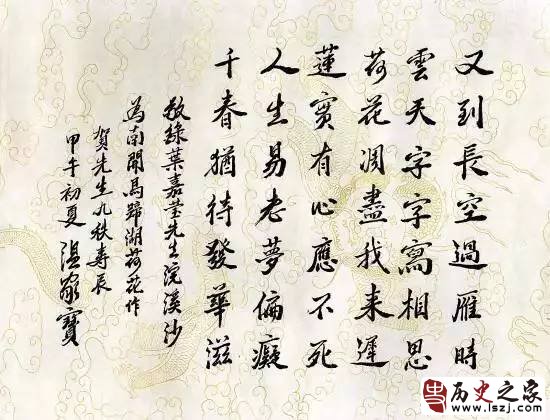 又到長空過雁時
雲天字字寫相思
荷花凋盡我来遲
蓮實有心應不死
人生易老夢偏癡
千春猶待發華滋
敬録葉嘉瑩先生浣溪沙
為南開馬蹄湖荷花作
賀先生九秩壽辰
甲午初夏 温家寶
历史之家
www.lszj.com